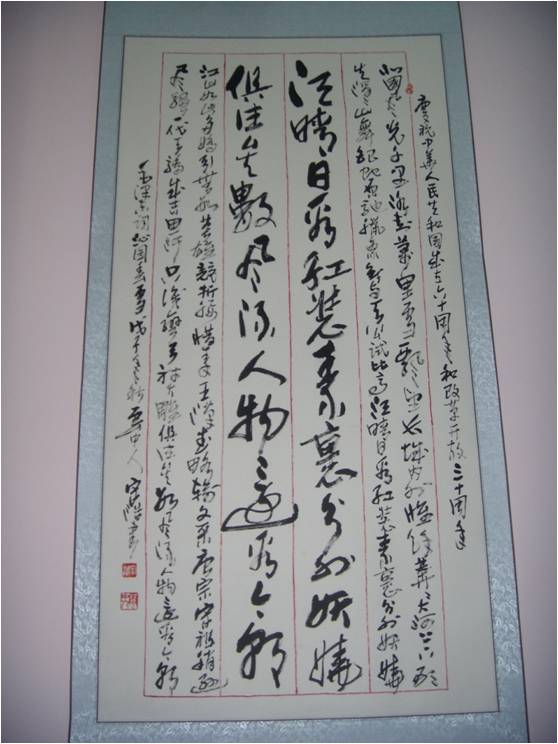 庆祝中华人民共和国成立六十周年和改革开放三十周年
北國风光千里冰封万里雪飘望长城内外惟馀莽莽大河上下顿
失滔滔山舞银蛇原驰蜡象欲与天公试比高须晴日看红装素裹分外妖娆
须晴日看红装素裹分外妖娆
俱往矣數风流人物还看今朝
江山如此多娇引无数英雄竞折腰惜秦皇汉武略输文采唐宗宋祖稍逊
风骚一代天骄成吉思汗只识弯弓射大雕俱往矣数风流人物还看今朝
毛泽东词沁园春雪戊子年秋